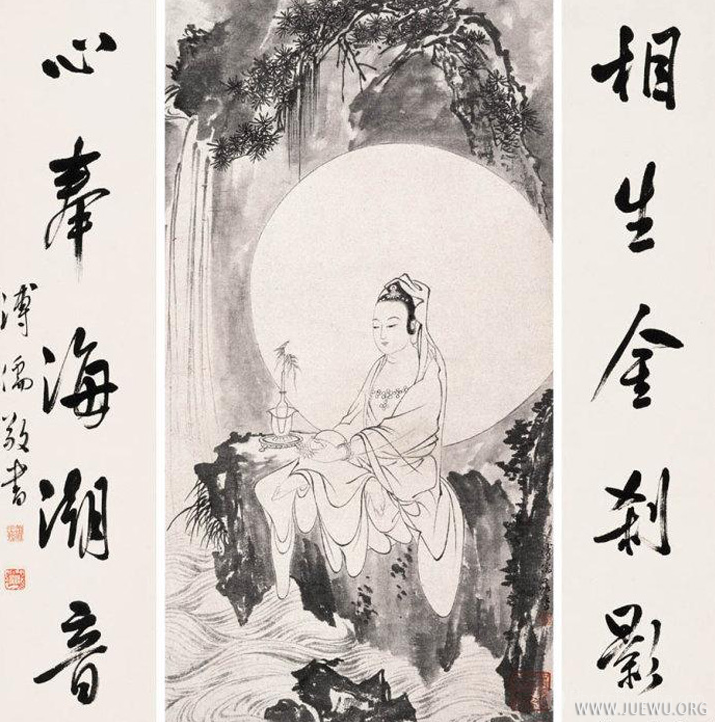 相生金刹影
心奉海潮音
溥儒敬書
WWW.JUEWU.ORG